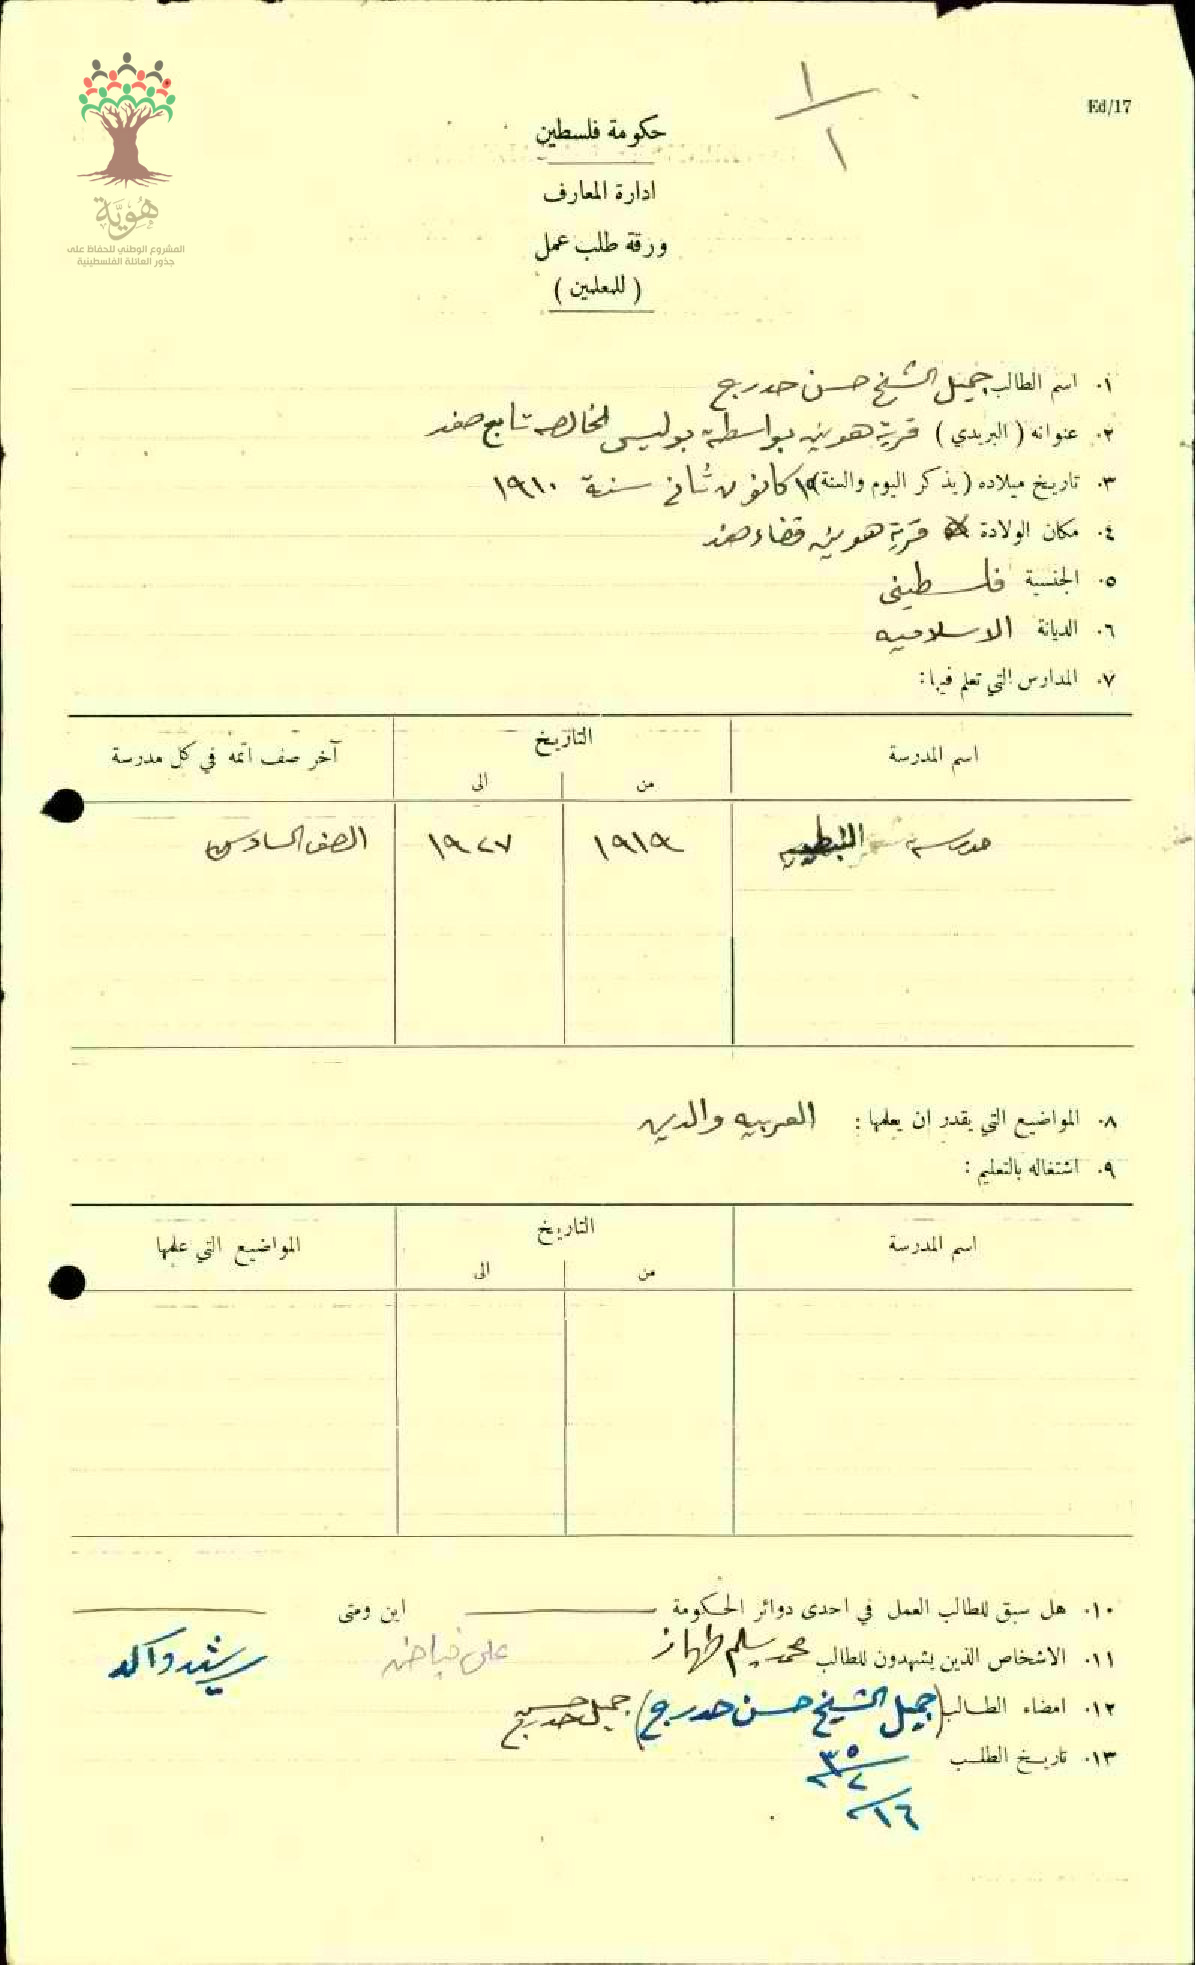 Ed/17
١/١
هُوِيَّة
المشروع الوطني للحفاظ على
جذور العائلة الفلسطينية
حكومة فلسطين
ادارة المعارف
ورقة طلب عمل
(للمعلمين)
١. اسم الطالب جميل الشيخ حسن حدرج
٢. عنوانه (البريدي) قرية هونين بواسطة بوليس الخالصه تابع صفد
٣. تاريخ ميلاده (يذكر اليوم والسنة) كانون ثاني سنة ١٩١٠
٤. مكان الولادة قرية هونين قضاء صفد
٥. الجنسية فلسطيني
٦. الديانة الاسلاميه
٧. المدارس التي تعلم فيها:
اسم المدرسة التاريخ آخر صف اتمه في كل مدرسة
من الى
مدرسة النبطيه ١٩١٩ ١٩٢٧ الصف السادس
٨. المواضيع التي يقدر ان يعلمها: العربيه والدين
٩. اشتغاله بالتعليم:
اسم المدرسة التاريخ المواضيع التي علمها
من الى
١٠. هل سبق للطالب العمل في احدى دوائر الحكومة اين ومتى
١١. الاشخاص الذين يشهدون للطالب محمد سليم علي رشيد واكد
١٢. امضاء الطالب (جميل الشيخ حسن حدرج) جميل حسن حدرج
١٣. تاريخ الطلب
١٦/٢/٣٥